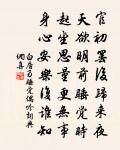 官初罷後歸來夜
天欲明前睡覺時
起坐思量更無事
身心安樂復誰知
白居易睡覺偶吟詞典
網書